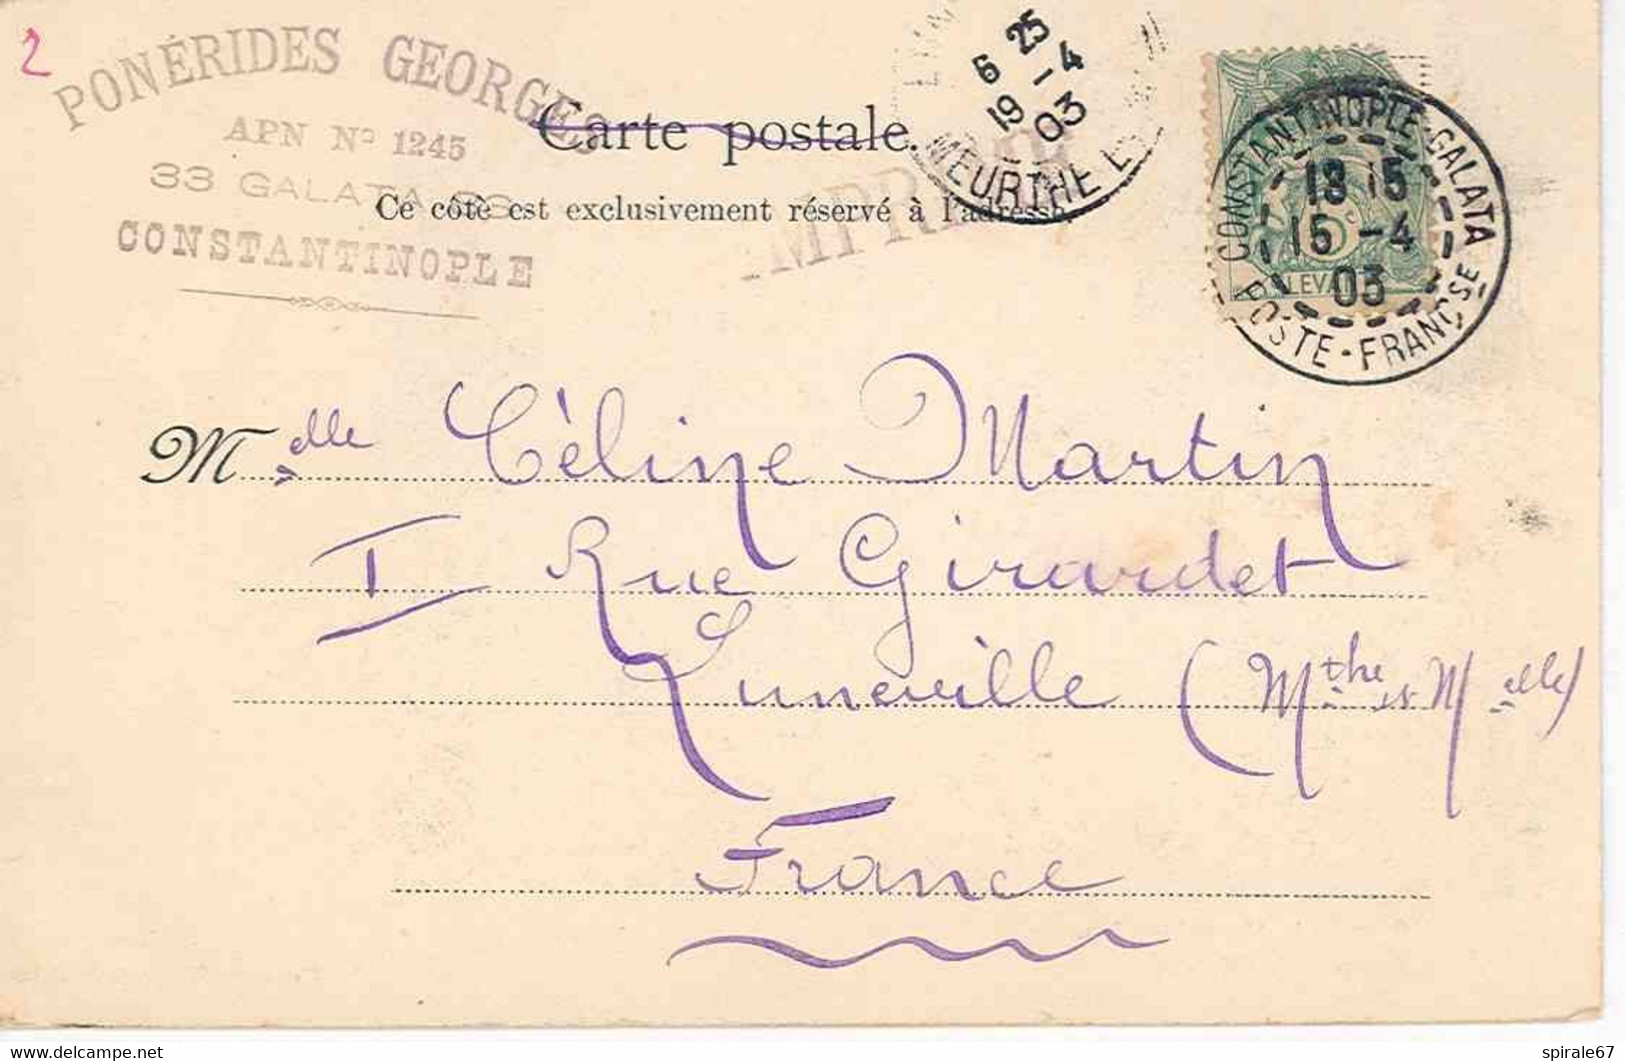 2
PONÉRIDES GEORGES
APN Nº 1245
33 GALATA 33
CONSTANTINOPLE
Carte postale.
Ce côté est exclusivement réservé à l'adresse.
6 25
19 -4
03
MEURTHE
IMPRIMÉ
CONSTANTINOPLE-GALATA
18 15
15 -4
03
POSTE-FRANÇSE
5c
LEVANT
Melle Céline Martin
I Rue Girardet
Luneville (Mthe et Melle)
France
spirale67